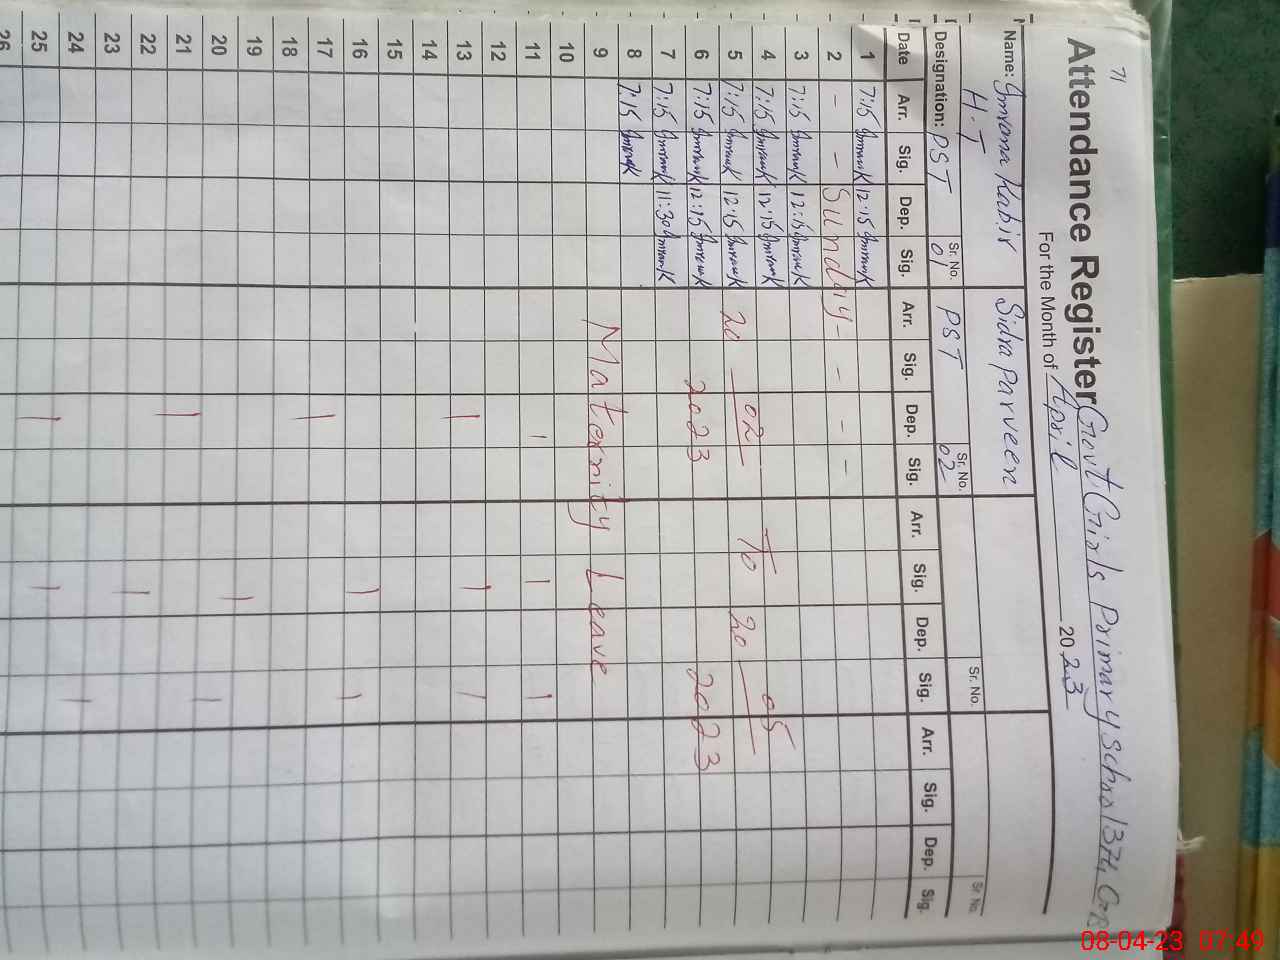 71
Attendance Register Govt. Girls Primary School 37H, GB
For the Month of April 2023
Name: Imrana Kabir Sidra Parveen
H.T
Designation: PST Sr. No. 01 PST Sr. No. 02 Sr. No. Sr. No.
Date Arr. Sig. Dep. Sig. Arr. Sig. Dep. Sig. Arr. Sig. Dep. Sig. Arr. Sig. Dep. Sig.
1 7:15 ImranaK 12:15 ImranaK
2 - - Sunday - - - -
3 7:15 ImranaK 12:15 ImranaK
4 7:15 ImranaK 12:15 ImranaK
5 7:15 ImranaK 12:15 ImranaK 20 02 To 20 05
6 7:15 ImranaK 12:15 ImranaK 2023 2023
7 7:15 ImranaK 11:30 ImranaK
8 7:15 ImranaK
9 Maternity Leave
10
11
12
13
14
15
16
17
18
19
20
21
22
23
24
25
26
08-04-23 07:49